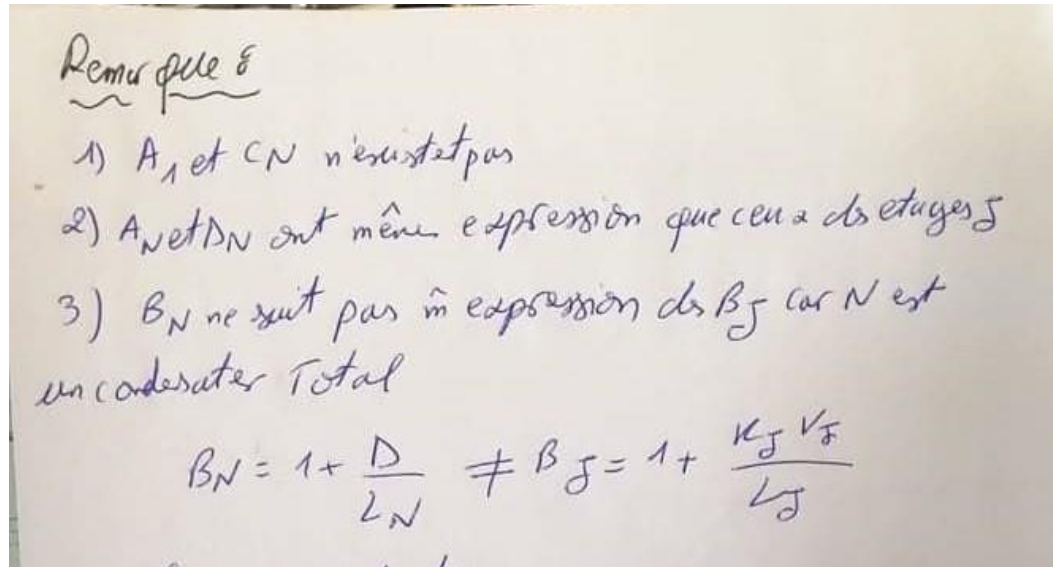 Remarque :
1) A₁ et CN n'existet pas
2) A_N et D_N ont même expression que ceux ds etages J
3) B_N ne suit pas m̂ expression ds B_J car N est
un condesater Total
B_N = 1 + D / L_N ≠ B_J = 1 + K_J V_J / L_J